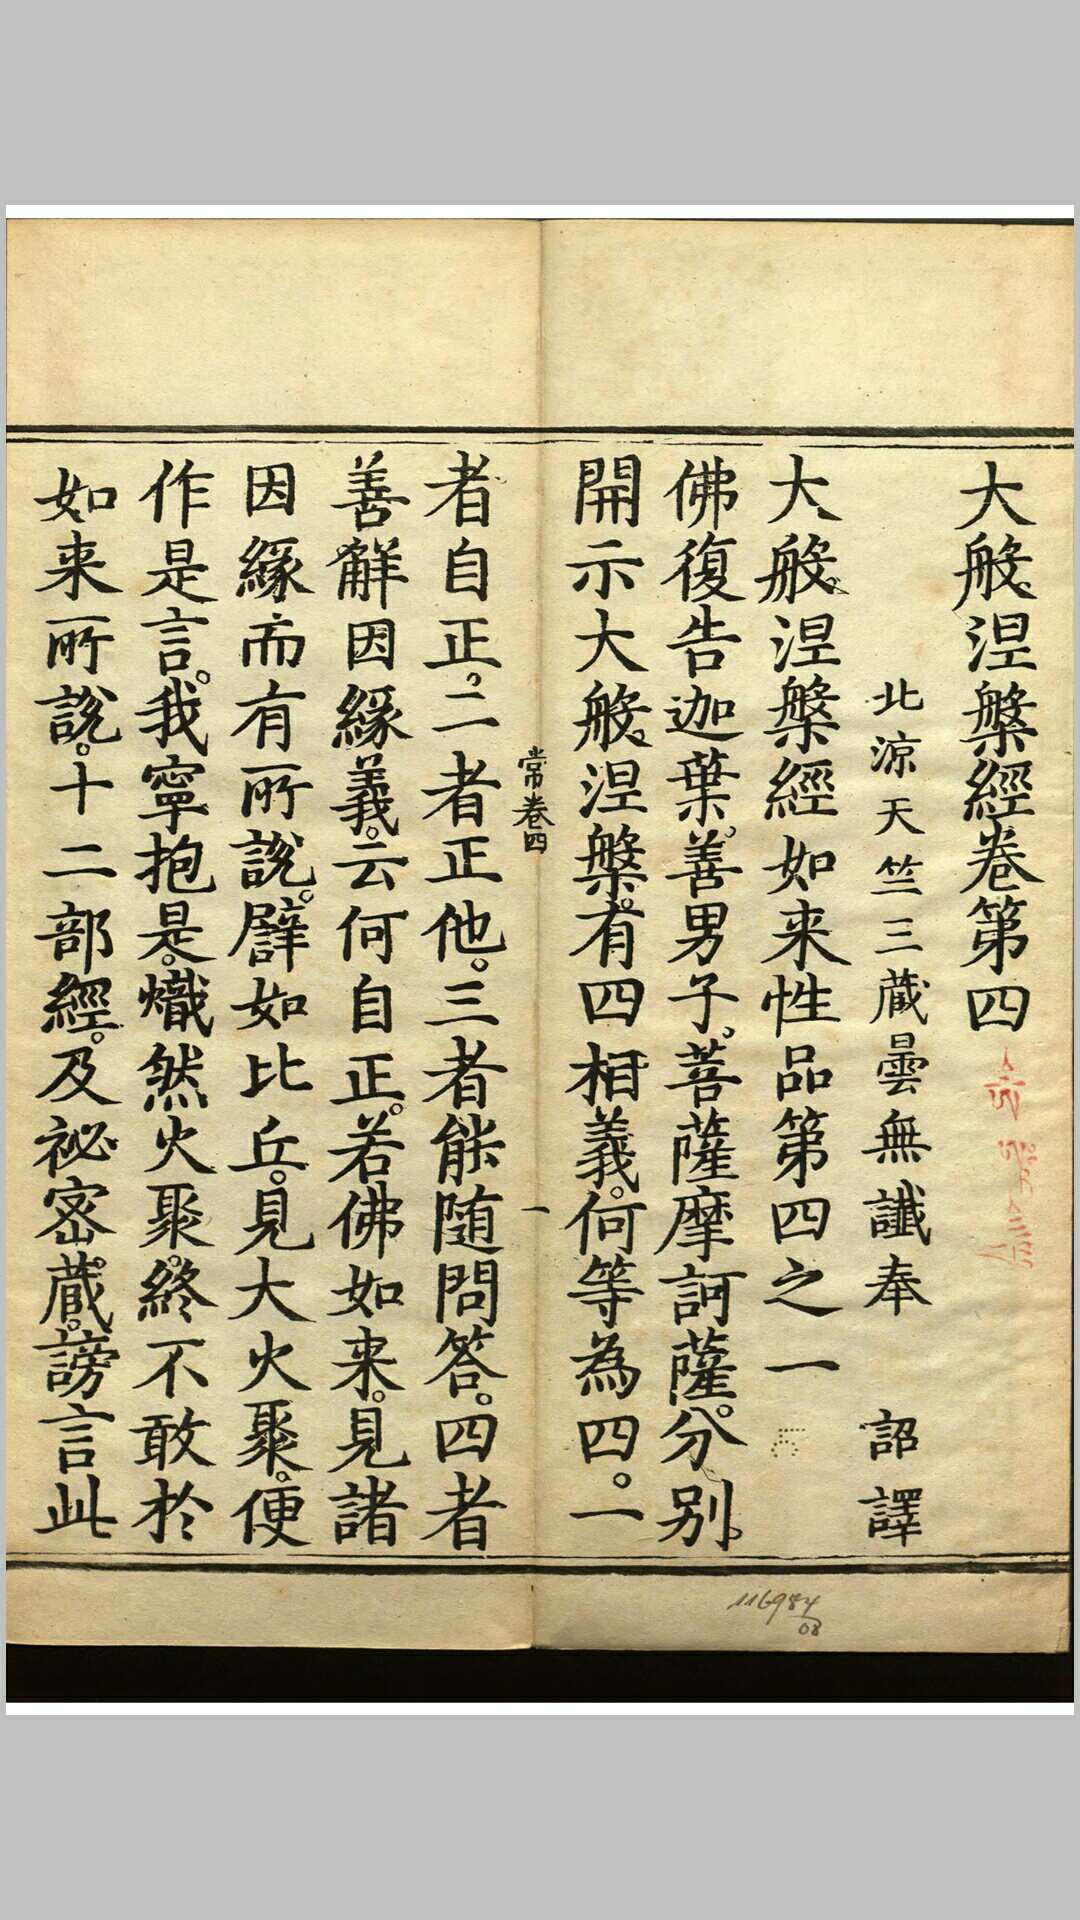 大般涅槃經卷第四
北涼天竺三藏曇無讖奉　詔譯
大般涅槃經如来性品第四之一
佛復告迦葉。善男子。菩薩摩訶薩。分別。
開示大般涅槃。有四相義。何等為四。一
常卷四　一
者自正。二者正他。三者能随問答。四者
善解因緣義。云何自正。若佛如来。見諸
因緣而有所說。譬如比丘。見大火聚。便
作是言。我寧抱是。熾然火聚。終不敢於
如来所說。十二部經。及祕密藏。謗言此
116984/08